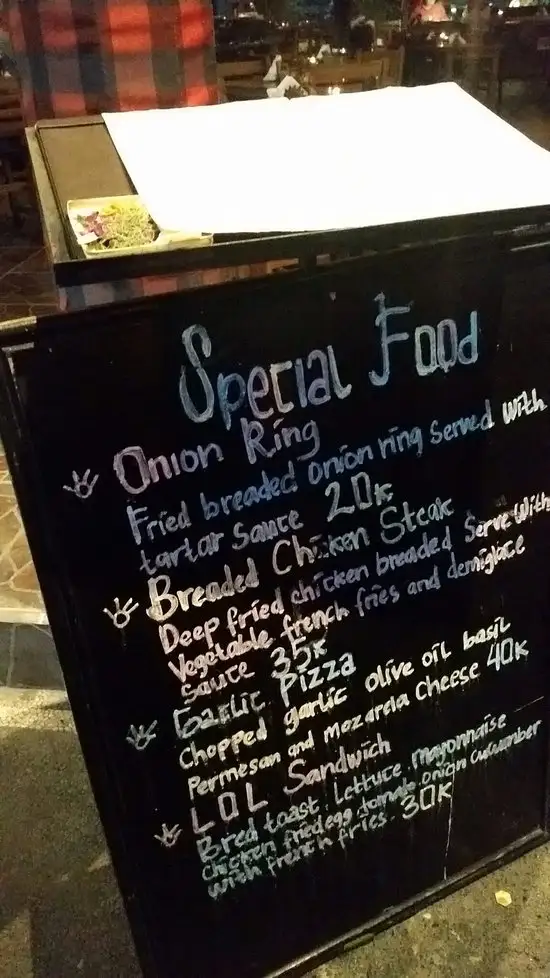 Special Food
Onion Ring
Fried breaded onion ring served with
tartar Sauce 20K
Breaded Chicken Steak
Deep fried chicken breaded Serve With
Vegetable french fries and demiglace
Sauce 35K
Garlic Pizza
Chopped garlic olive oil basil
Permesan and mozarela Cheese 40K
LOL Sandwich
Bred toast, Lettuce, mayonnaise
Chicken fried egg, tomato, onion cucumber
with french fries. 30K